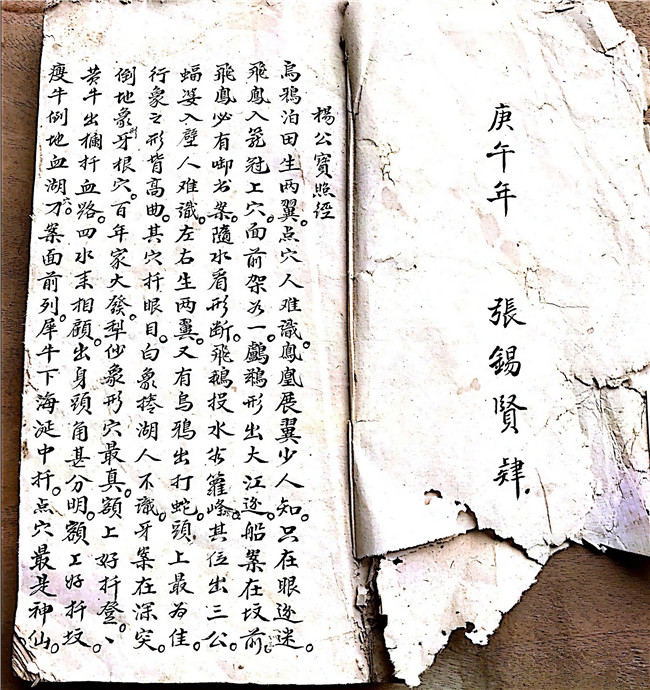 庚午年 張錫賢 肄
楊公寶照經
烏鴉泊田生两翼。点穴人难識。鳳凰展翼少人知。只在眼边迷。
飛鳳入篭冠上穴。面前架为一。鸕鶿形出大江边。船案在坟前。
飛鳳必有啣书案。隨水看形断。飛鵝投水 其位出三公。
蝠婆入壁人难識。左右生两翼。又有烏鴉出打蛇。頭上最为佳。
行象之形皆高曲。其穴扦眼目。白象捲湖人不識。牙案在深突。
倒地象形牙根穴。百年家大發。犁 象形穴最真。額上好扦登。
黄牛出欄扦血路。四水来相顧。出身頭角甚分明。額上好扦坟。
瘦牛倒地血湖穴。刀案面前列。犀牛下海涎中扦。点穴最是神仙。